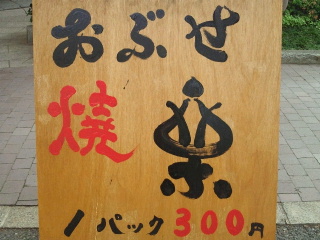 おぶせ
焼栗
1パック300円